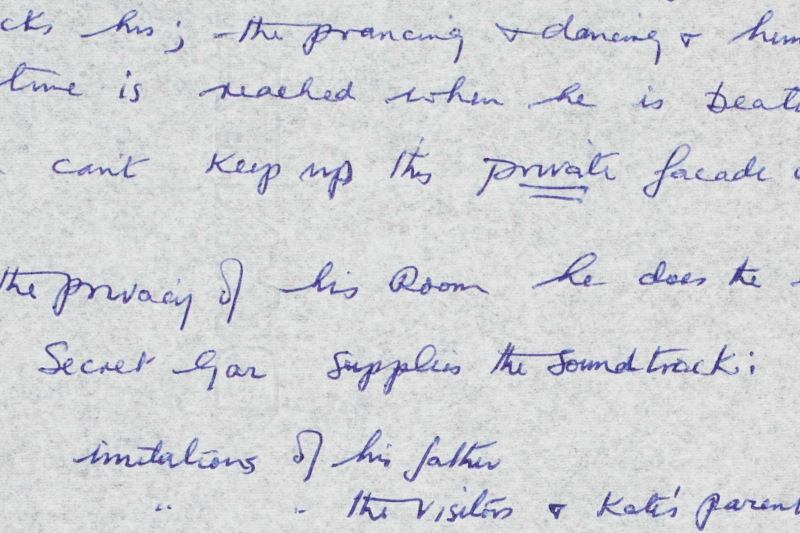 cks his; the prancing & dancing & him
time is reached when he is Beat
can't keep up this private facade
the privacy of his Room he does the
Secret Ear supplies the soundtrack:
imitations of his father
" " the visitors & Kate's parent